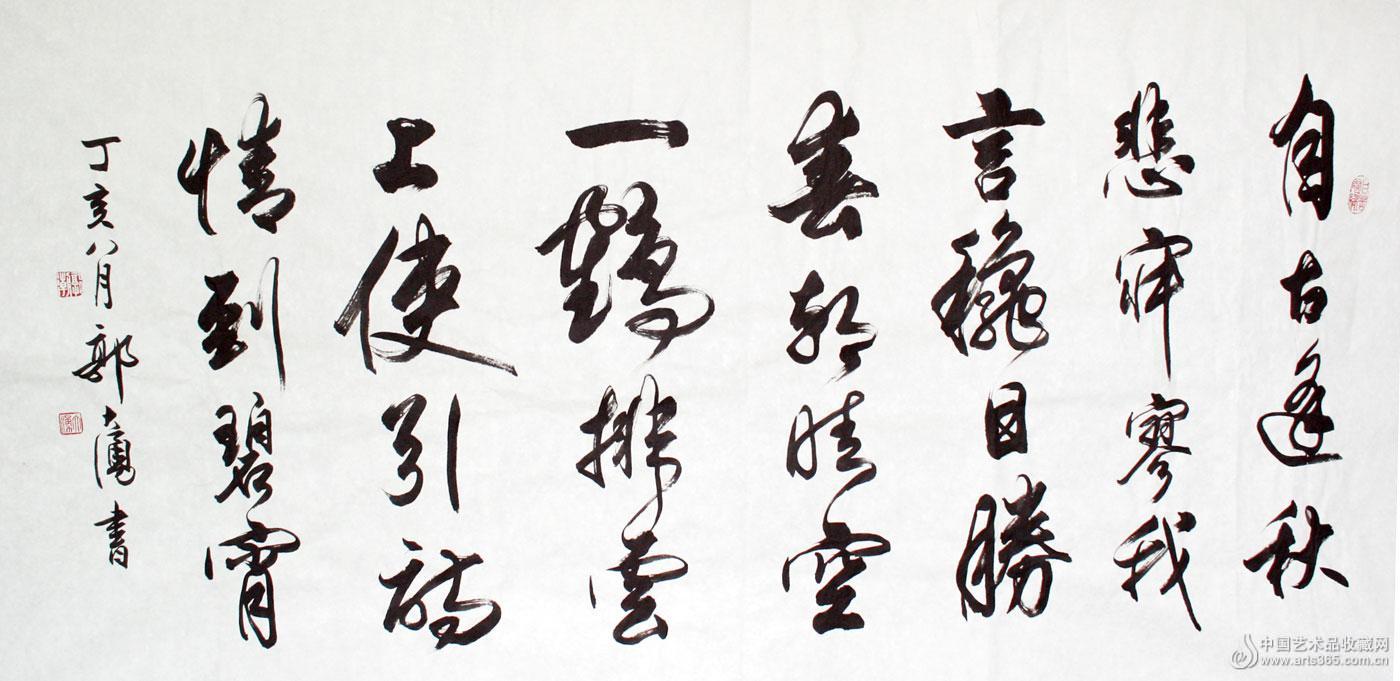 自古逢秋
悲寂寥我
言龝日勝
春朝晴空
一鶴排雲
上便引詩
情到碧霄
丁亥八月郭大書
中国艺术品收藏网
www.arts365.com.cn